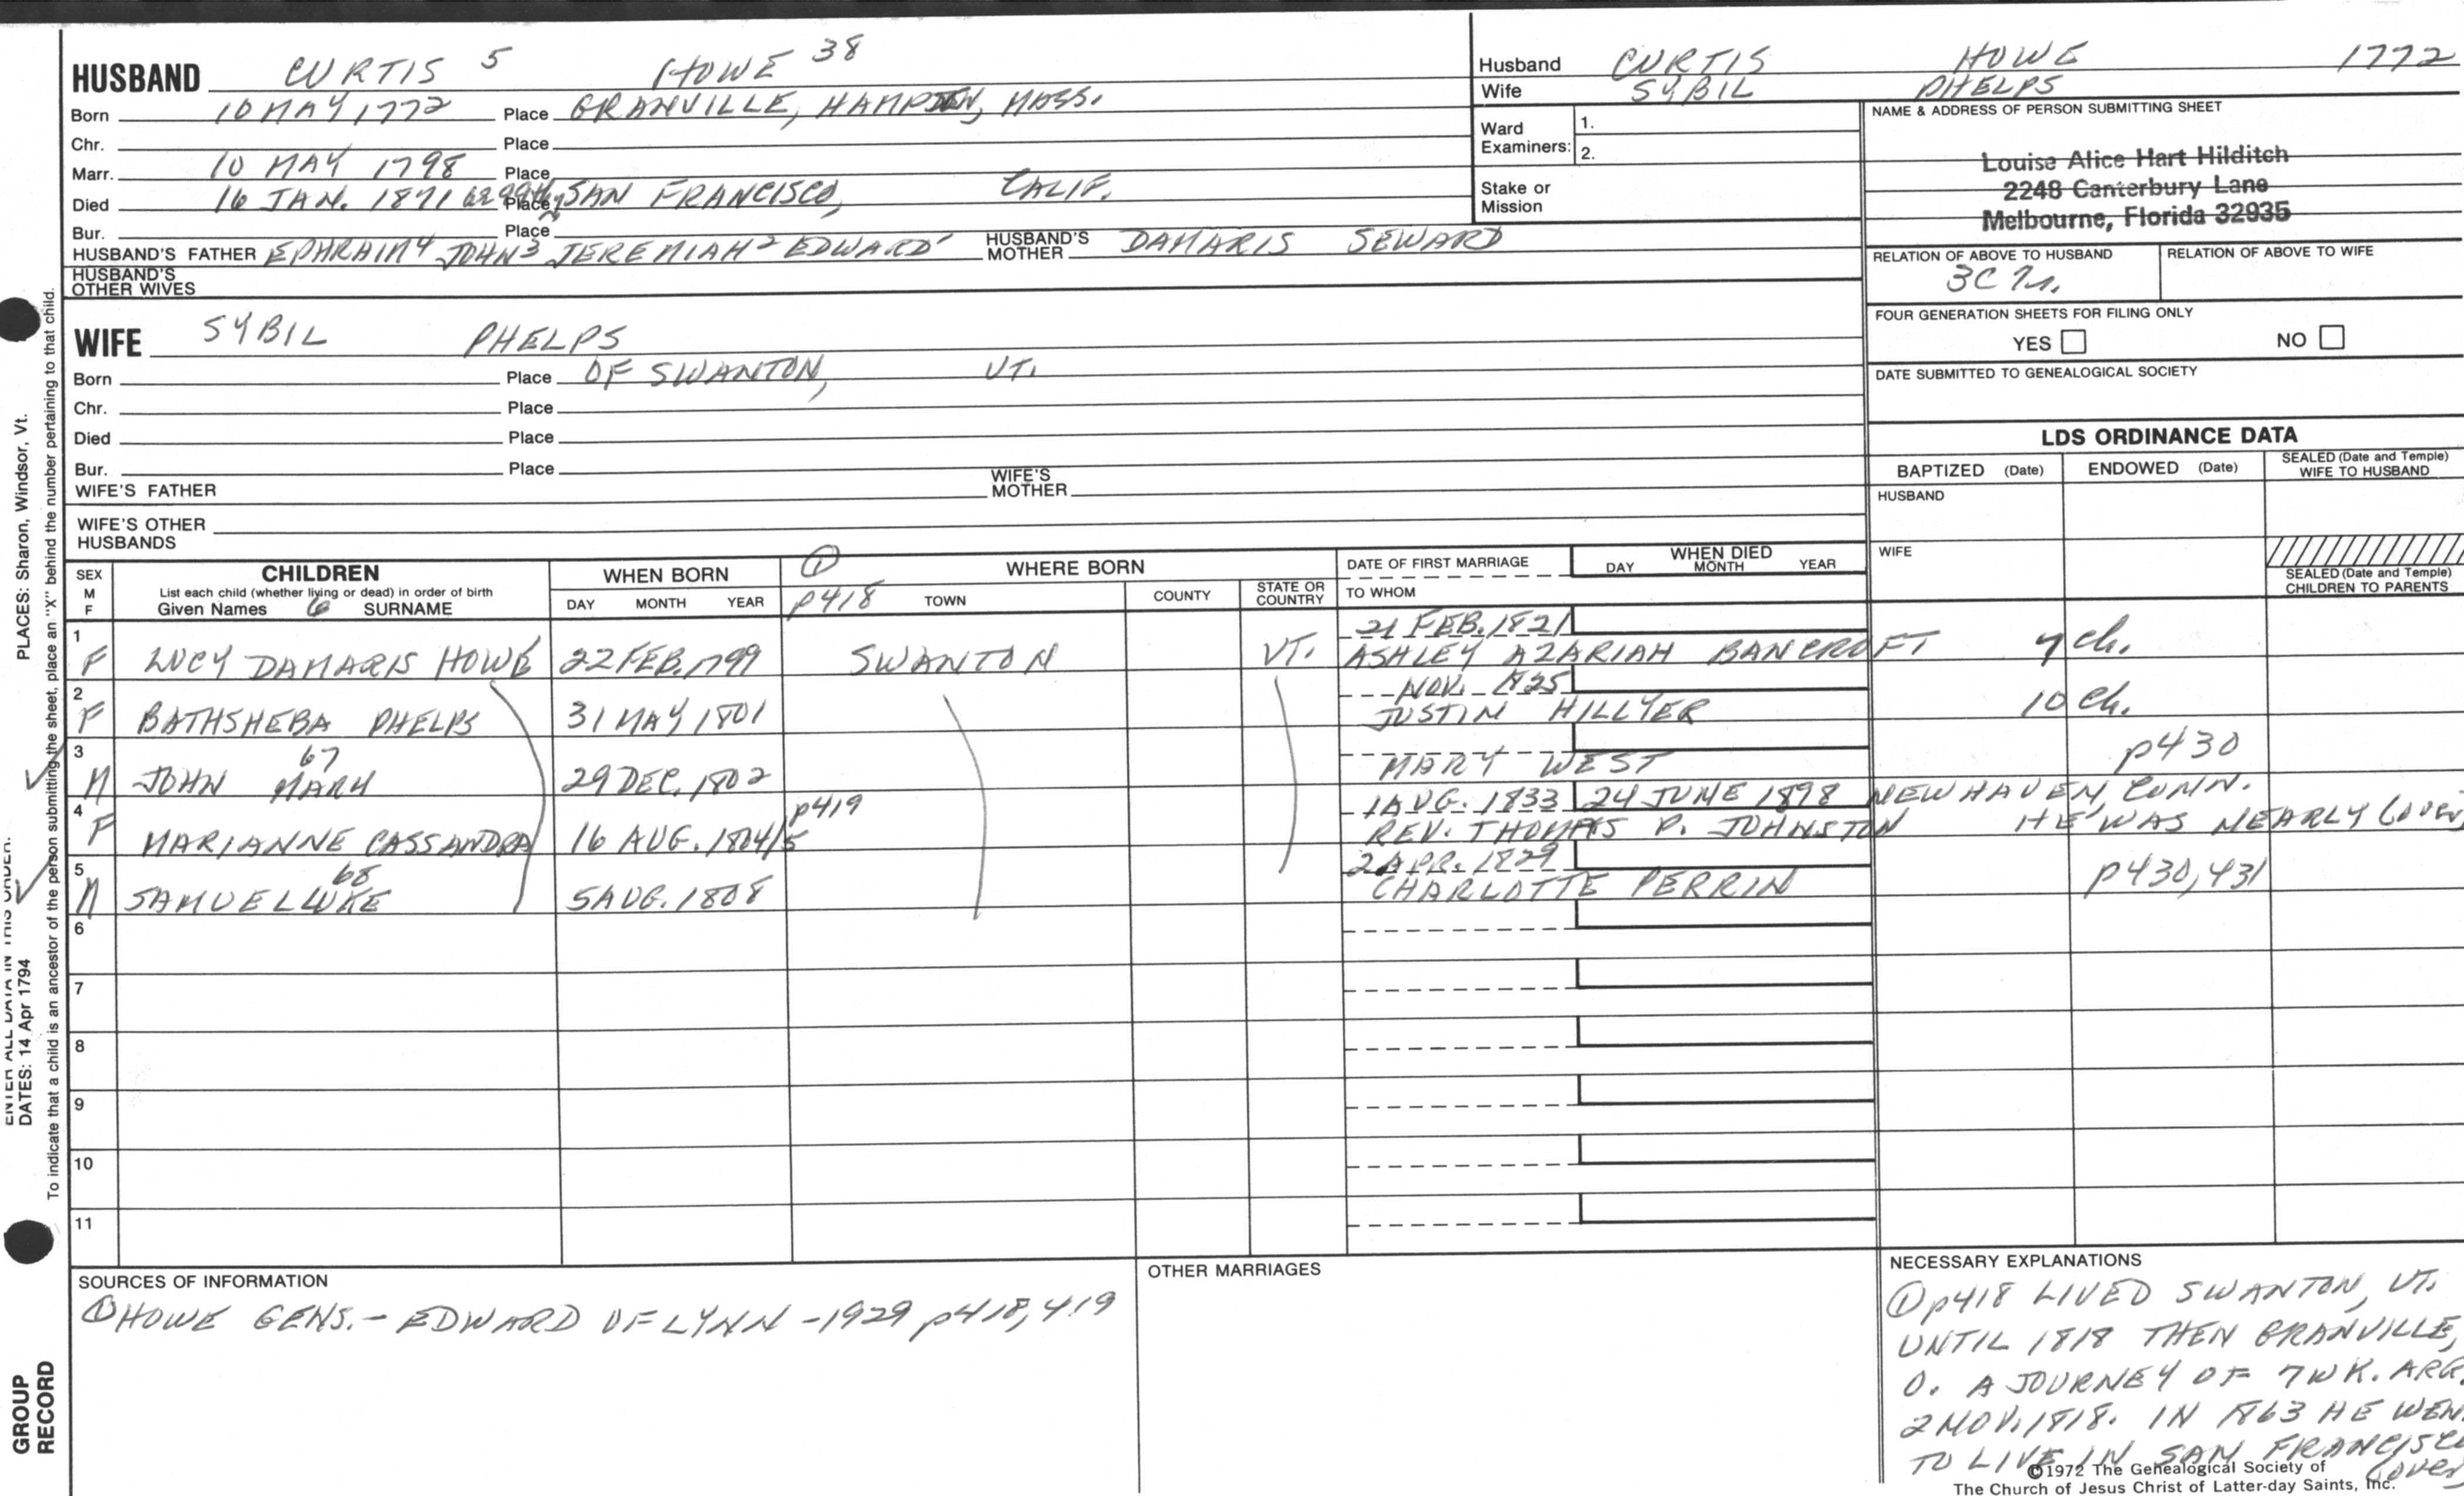 HUSBAND CURTIS 5 HOWE 38
Born 10 MAY 1772 Place GRANVILLE, HAMPDEN, MASS.
Chr. Place
Marr. 10 MAY 1798 Place
Died 16 JAN. 1871 Place SAN FRANCISCO, CALIF.
Bur. Place
HUSBAND'S FATHER EPHRAIM 4 JOHN 3 JEREMIAH 2 EDWARD 1 HUSBAND'S MOTHER DAMARIS SEWARD
HUSBAND'S OTHER WIVES
WIFE SYBIL PHELPS
Born Place OF SWANTON, VT.
Chr. Place
Died Place
Bur. Place
WIFE'S FATHER WIFE'S MOTHER
WIFE'S OTHER HUSBANDS
Husband CURTIS HOWE 1772
Wife SYBIL PHELPS
Ward Examiners: 1.
2.
Stake or Mission
NAME & ADDRESS OF PERSON SUBMITTING SHEET
Louise Alice Hart Hilditch
2248 Canterbury Lane
Melbourne, Florida 32935
RELATION OF ABOVE TO HUSBAND RELATION OF ABOVE TO WIFE
FOUR GENERATION SHEETS FOR FILING ONLY
YES NO
DATE SUBMITTED TO GENEALOGICAL SOCIETY
LDS ORDINANCE DATA
BAPTIZED (Date) ENDOWED (Date) SEALED (Date and Temple) WIFE TO HUSBAND
HUSBAND
WIFE
SEALED (Date and Temple) CHILDREN TO PARENTS
SEX M F
CHILDREN
List each child (whether living or dead) in order of birth
Given Names 6 SURNAME
WHEN BORN
DAY MONTH YEAR
① p418
WHERE BORN
TOWN COUNTY STATE OR COUNTRY
DATE OF FIRST MARRIAGE
TO WHOM
WHEN DIED
DAY MONTH YEAR
21 FEB. 1821
1 F LUCY DAMARIS HOWE 22 FEB. 1799 SWANTON VT. ASHLEY AZARIAH BANCROFT ch.
NOV. 1825
2 F BATHSHEBA PHELPS 31 MAY 1801 JUSTIN HILLYER 10 ch.
3 M JOHN MARK 67 29 DEC. 1802 MARY WEST p430
1 AUG. 1833 24 JUNE 1898 NEW HAVEN, CONN.
4 F MARIANNE CASSANDRA 16 AUG. 1804/5 p419 REV. THOMAS P. JOHNSTON HE WAS NEARLY (over)
2 APR. 1829
5 M SAMUEL LUKE 68 5 AUG. 1808 CHARLOTTE PERRIN p430, 431
6
7
8
9
10
11
SOURCES OF INFORMATION
① HOWE GENS. - EDWARD OF LYNN - 1929 p418, 419
OTHER MARRIAGES
NECESSARY EXPLANATIONS
① p418 LIVED SWANTON, VT.
UNTIL 1818 THEN GRANVILLE,
O. A JOURNEY OF 7 WK. ARR.
2 NOV. 1818. IN 1863 HE WEN
TO LIVE IN SAN FRANCISCO
(over)
©1972 The Genealogical Society of
The Church of Jesus Christ of Latter-day Saints, Inc.
PLACES: Sharon, Windsor, Vt.
ENTER ALL DATA IN THIS ORDER:
DATES: 14 Apr 1794
To indicate that a child is an ancestor of the person submitting the sheet, place an "X" behind the number pertaining to that child.
GROUP
RECORD